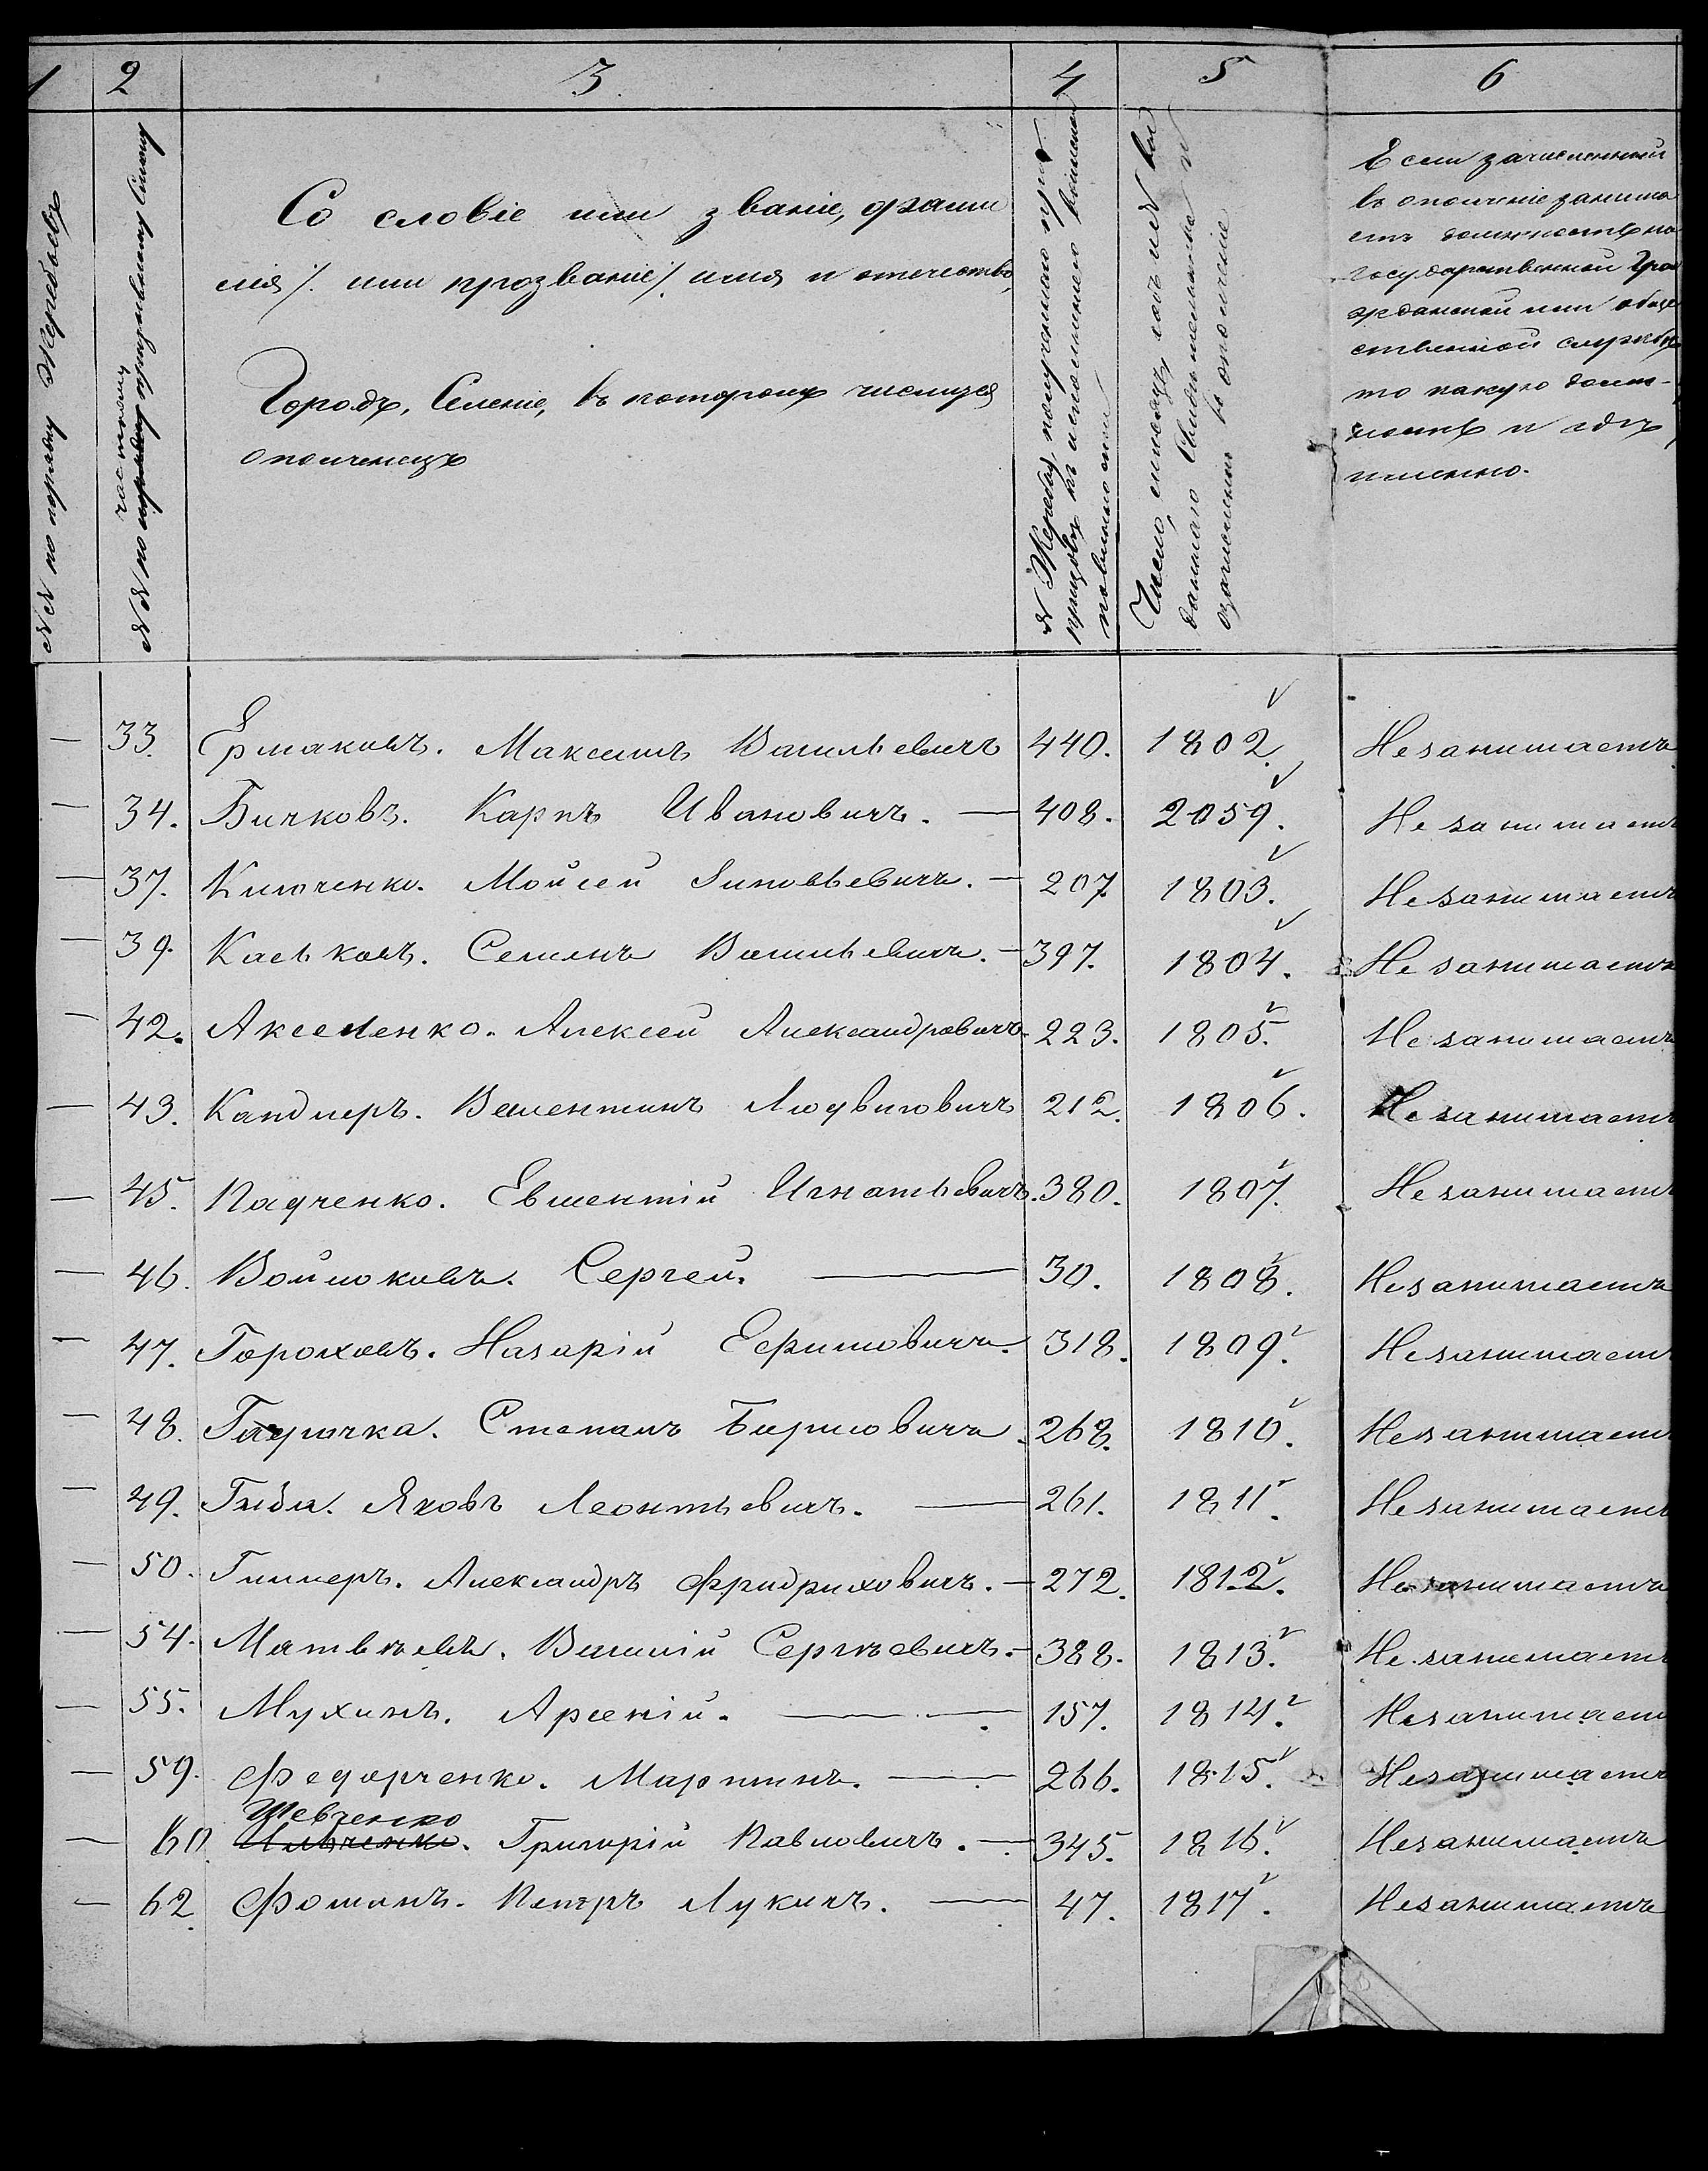 1 2 3 4 5 6
№№ по порядку Жеребьевъ
частному
№№ по порядку призывному списку
Со словіе или званіе, фами
лія /. или прозваніе /. имя и отчество,
Городъ, Селеніе, въ которомъ числится
ополченецъ
№ Жеребья, полученнаго при
призывѣ къ исполненію воинской
повинности
Число, мѣсяцъ, годъ и № вы
даннаго Свидѣтельства о
зачисленіи въ ополченіе
Если зачисленный
въ ополченіе занима
етъ должность на
государственной Гра
жданской или обще
ственной службѣ,
то какую долж-
ность и гдѣ
именно.
— 33. Ермаковъ. Максимъ Васильевичъ 440. 1802. Незанимаетъ
— 34. Бичковъ. Карпъ Ивановичъ. — 408. 2059. Незанимаетъ
— 37. Ключенко. Мойсей Зиновьевичъ. — 207 1803. Незанимаетъ
— 39. Каськовъ. Семенъ Васильевичъ. — 397. 1804. Незанимаетъ
— 42. Аксененко. Алексей Александровичъ. 223. 1805. Незанимаетъ
— 43. Кандлеръ. Валентинъ Людвиговичъ 212. 1806. Незанимаетъ
— 45. Радченко. Евментій Игнатьевичъ. 380. 1807. Незанимаетъ
— 46. Войлоковъ. Сергей. — 30. 1808. Незанимаетъ
— 47. Гороховъ. Назарій Ефимовичъ. 318. 1809. Незанимаетъ
— 48. Степанъ 268. 1810. Незанимаетъ
— 49. Яковъ Леонтьевичъ. — 261. 1811. Незанимаетъ
— 50. Гиллеръ. Александръ Фридриховичъ. — 272. 1812. Незанимаетъ
— 54. Матвѣевъ. Василій Сергѣевичъ. — 388. 1813. Незанимаетъ
— 55. Мухинъ. Арсеній. — 157. 1814. Незанимаетъ
— 59. Федорченко. Мартинъ. — 266. 1815. Незанимаетъ
Шевченко
— 60. Ильченко. Григорій Павловичъ. — 345. 1816. Незанимаетъ
— 62. Фоминъ. Петръ Лукичъ. — 47. 1817. Незанимаетъ